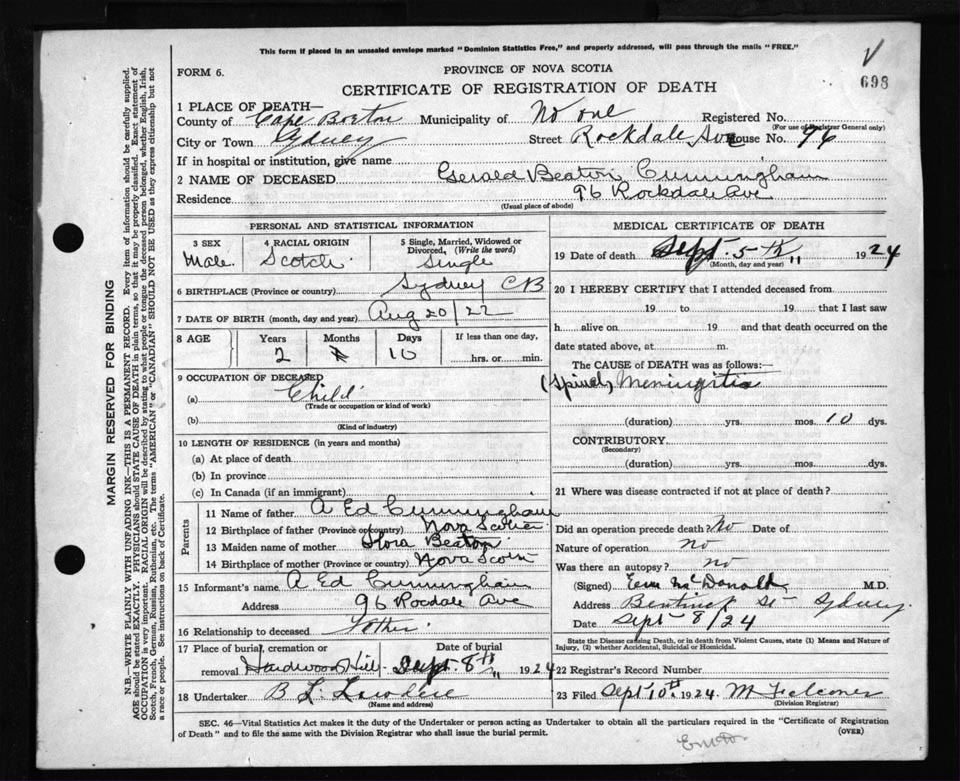 This form if placed in an unsealed envelope marked "Dominion Statistics Free," and properly addressed, will pass through the mails "FREE."
698
FORM 6.
PROVINCE OF NOVA SCOTIA
CERTIFICATE OF REGISTRATION OF DEATH
1 PLACE OF DEATH—
County of Cape Breton Municipality of No one Registered No.
(For use of Registrar General only)
City or Town Sydney Street Rockdale Ave House No. 96
If in hospital or institution, give name
2 NAME OF DECEASED Gerald Beaton Cunningham
Residence 96 Rockdale Ave
(Usual place of abode)
PERSONAL AND STATISTICAL INFORMATION
3 SEX Male
4 RACIAL ORIGIN Scotch
5 Single, Married, Widowed or Divorced, (Write the word) Single
6 BIRTHPLACE (Province or country) Sydney CB
7 DATE OF BIRTH (month, day and year) Aug 20/22
8 AGE Years Months Days If less than one day,
2 10 hrs. or min.
9 OCCUPATION OF DECEASED
(a) Child
(Trade or occupation or kind of work)
(b)
(Kind of industry)
10 LENGTH OF RESIDENCE (in years and months)
(a) At place of death
(b) In province
(c) In Canada (if an immigrant)
Parents
11 Name of father A Ed Cunningham
12 Birthplace of father (Province or country) Nova Scotia
13 Maiden name of mother Flora Beaton
14 Birthplace of mother (Province or country) Nova Scotia
15 Informant's name A. Ed Cunningham
Address 96 Rocdale Ave
16 Relationship to deceased Father
17 Place of burial, cremation or removal Hardwood Hill Date of burial Sept 8th 1924
18 Undertaker B L
(Name and address)
MEDICAL CERTIFICATE OF DEATH
19 Date of death Sept 5th 1924
(Month, day and year)
20 I HEREBY CERTIFY that I attended deceased from
19 to 19 that I last saw
h alive on 19 and that death occurred on the
date stated above, at m.
The CAUSE OF DEATH was as follows:—
(Spinal) Meningitis
(duration) yrs. mos. 10 dys.
CONTRIBUTORY
(Secondary)
(duration) yrs. mos. dys.
21 Where was disease contracted if not at place of death?
Did an operation precede death? No Date of
Nature of operation no
Was there an autopsy? no
(Signed) McDonald M.D.
Address Bentinck St Sydney
Date Sept 8/24
State the Disease causing Death, or in death from Violent Causes, state (1) Means and Nature of Injury, (2) whether Accidental, Suicidal or Homicidal.
22 Registrar's Record Number
23 Filed Sept 10th 1924 M Falconer
(Division Registrar)
SEC. 46—Vital Statistics Act makes it the duty of the Undertaker or person acting as Undertaker to obtain all the particulars required in the "Certificate of Registration
of Death" and to file the same with the Division Registrar who shall issue the burial permit.
(OVER)
MARGIN RESERVED FOR BINDING
N.B.—WRITE PLAINLY WITH UNFADING INK—THIS IS A PERMANENT RECORD. Every item of information should be carefully supplied.
AGE should be stated EXACTLY. PHYSICIANS should STATE CAUSE OF DEATH in plain terms, so that it may be properly classified. Exact statement of
OCCUPATION is very important. RACIAL ORIGIN will be described by stating to what people or tongue the deceased person belonged, whether English, Irish,
Scotch, French, German, Russian, Ruthenian, etc. The terms "AMERICAN" or "CANADIAN" SHOULD NOT BE USED as they express citizenship but not
a race or people. See instructions on back of Certificate.